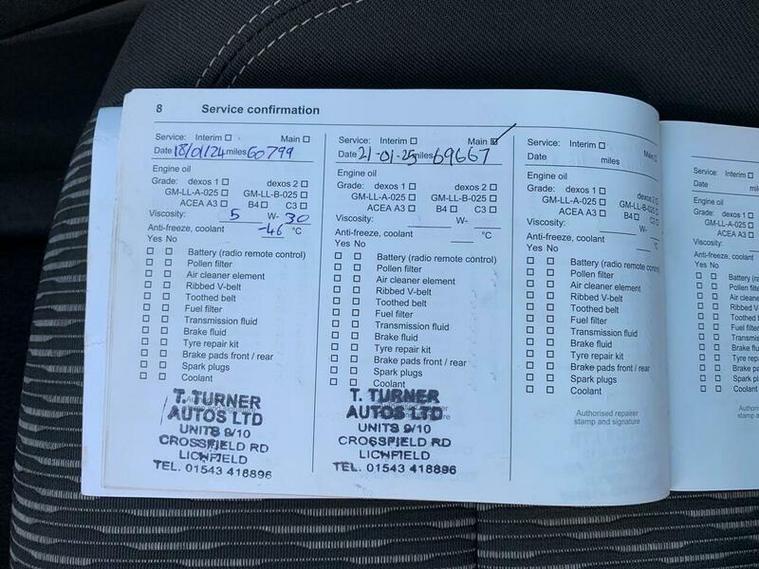 8 Service confirmation
Service: Interim Main
Date 18/01/24 miles 60799
Engine oil
Grade: dexos 1 dexos 2
GM-LL-A-025 GM-LL-B-025
ACEA A3 B4 C3
Viscosity: 5 W- 30
Anti-freeze, coolant -46 °C
Yes No
Battery (radio remote control)
Pollen filter
Air cleaner element
Ribbed V-belt
Toothed belt
Fuel filter
Transmission fluid
Brake fluid
Tyre repair kit
Brake pads front / rear
Spark plugs
Coolant
T. TURNER
AUTOS LTD
UNITS 9/10
CROSSFIELD RD
LICHFIELD
TEL. 01543 418896
Service: Interim Main
Date 21-01-25 miles 69667
Engine oil
Grade: dexos 1 dexos 2
GM-LL-A-025 GM-LL-B-025
ACEA A3 B4 C3
Viscosity: W-
Anti-freeze, coolant °C
Yes No
Battery (radio remote control)
Pollen filter
Air cleaner element
Ribbed V-belt
Toothed belt
Fuel filter
Transmission fluid
Brake fluid
Tyre repair kit
Brake pads front / rear
Spark plugs
Coolant
T. TURNER
AUTOS LTD
UNITS 9/10
CROSSFIELD RD
LICHFIELD
TEL. 01543 418896
Service: Interim Main
Date miles
Engine oil
Grade: dexos 1 dexos 2
GM-LL-A-025 GM-LL-B-025
ACEA A3 B4 C3
Viscosity: W-
Anti-freeze, coolant °C
Yes No
Battery (radio remote control)
Pollen filter
Air cleaner element
Ribbed V-belt
Toothed belt
Fuel filter
Transmission fluid
Brake fluid
Tyre repair kit
Brake pads front / rear
Spark plugs
Coolant
Authorised repairer
stamp and signature
Service: Interim
Date mil
Engine oil
Grade: dexos 1
GM-LL-A-025
ACEA A3
Viscosity:
Anti-freeze, coolant
Yes No
Battery (ra
Pollen filte
Air cleane
Ribbed V-
Toothed b
Fuel filter
Transmiss
Brake flu
Tyre repa
Brake pa
Spark pl
Coolant